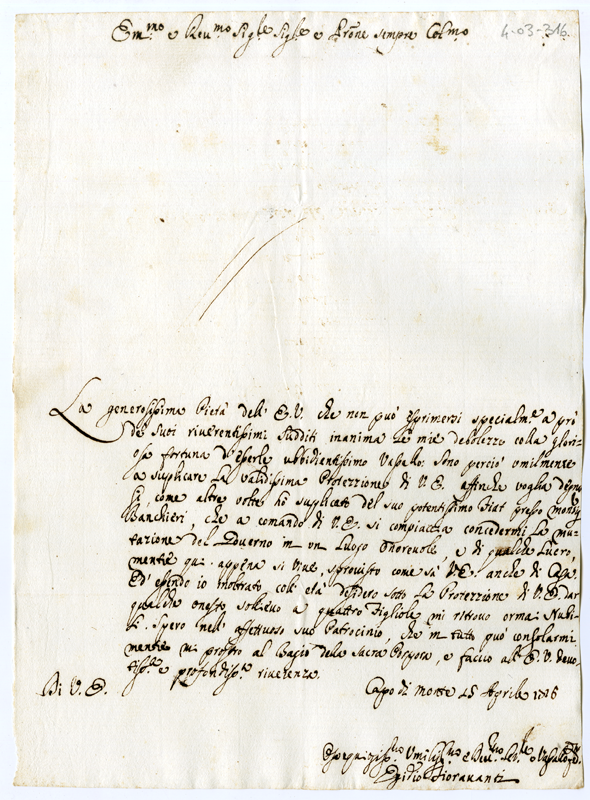 Em.mo e Reu.mo Sig.re Sig.re e Prone sempre Colmo
4-03-316
La generosissima Pietà dell' E.V. che non può esprimerzi specialm.e a prò
de' suoi riuerentissimi sudditi inanima le mie debolezze colla glori-
osa fortuna d'esserle ubbidiantissimo Vassallo. Sono perciò umilmente
a suplicare La Validissima Protezzione di V.E. affinche voglia
come altre volte hò suplicato del suo potentissimo Fiat presso
Banchieri, che a comando di V.E. si compiaccia concedermi La mu-
tazione del Gouerno in vn Luogo Onoreuole, e di qualche Lucro,
mentre qui appena si viue, sprouisto come sà V.E. anche di Casa.
Ed' essendo io inoltrato coll' età desidero sotto La Protezzione di V.E. dar
qualche onesto sollieuo a quattro Figliole mi ritrouo ormai Nubi-
li. Spero nell' affettuoso suo Patrocinio, che in tutto può consolarmi
mentre mi prostro al Bagio della Sacra Porpora, e faccio all' E.V. deuo-
tiss.a e profondiss.a riuerenza.
Di V.E. Capo di Monte 25 Aprile
Vmiliss.mo
Egidio Fiorauanti